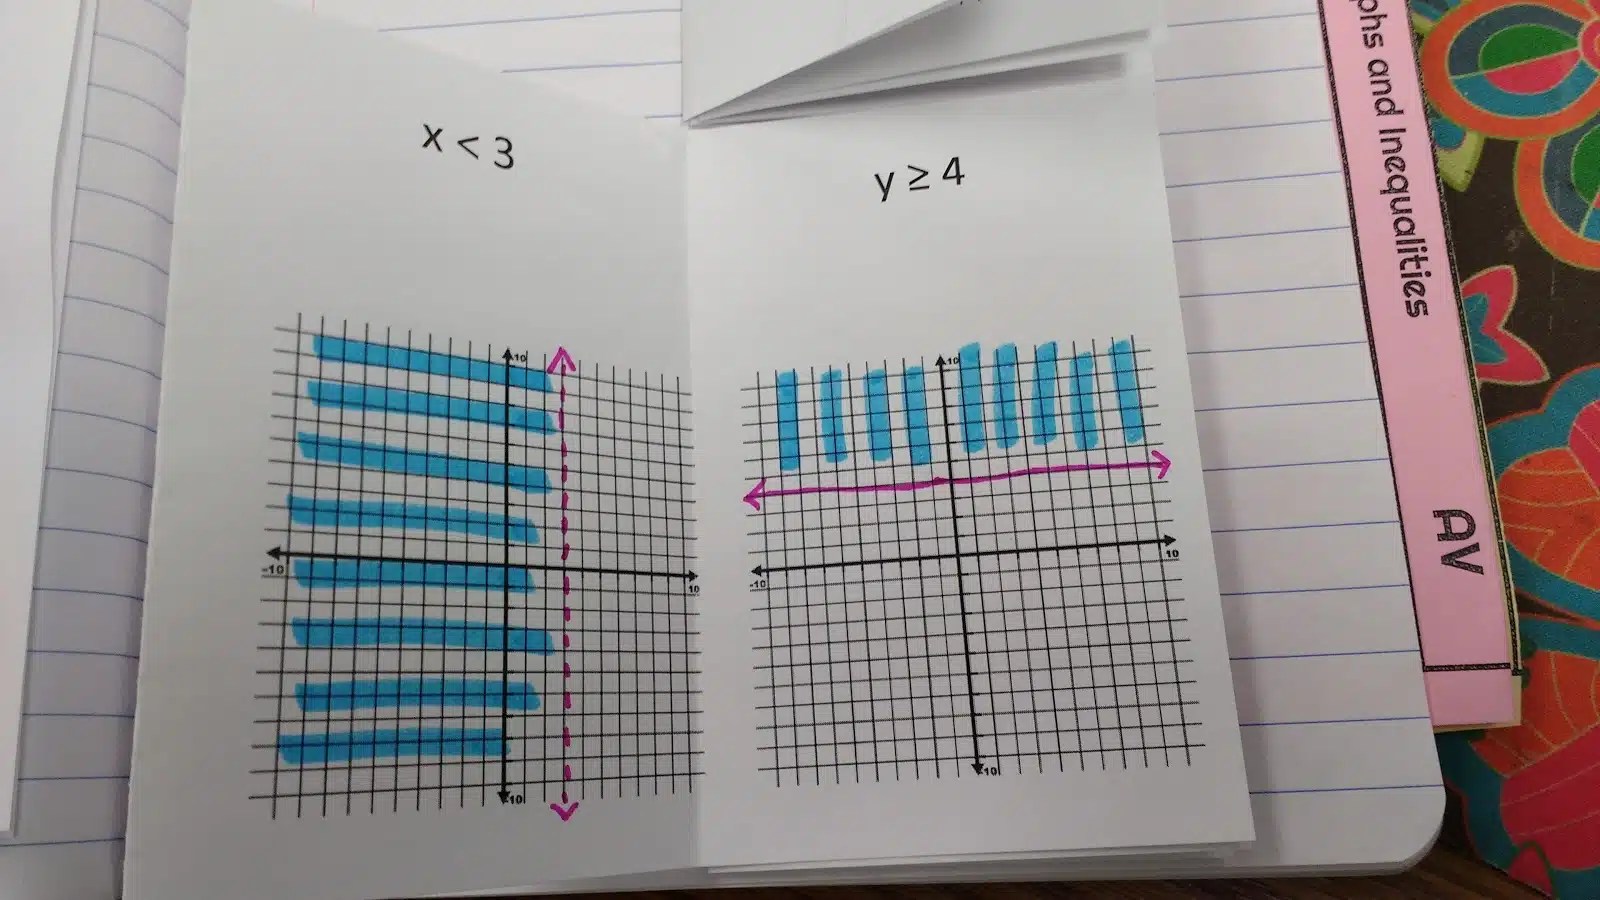 x < 3
10
-10
10
10
y ≥ 4
10
-10
10
10
phs and Inequalities
AV